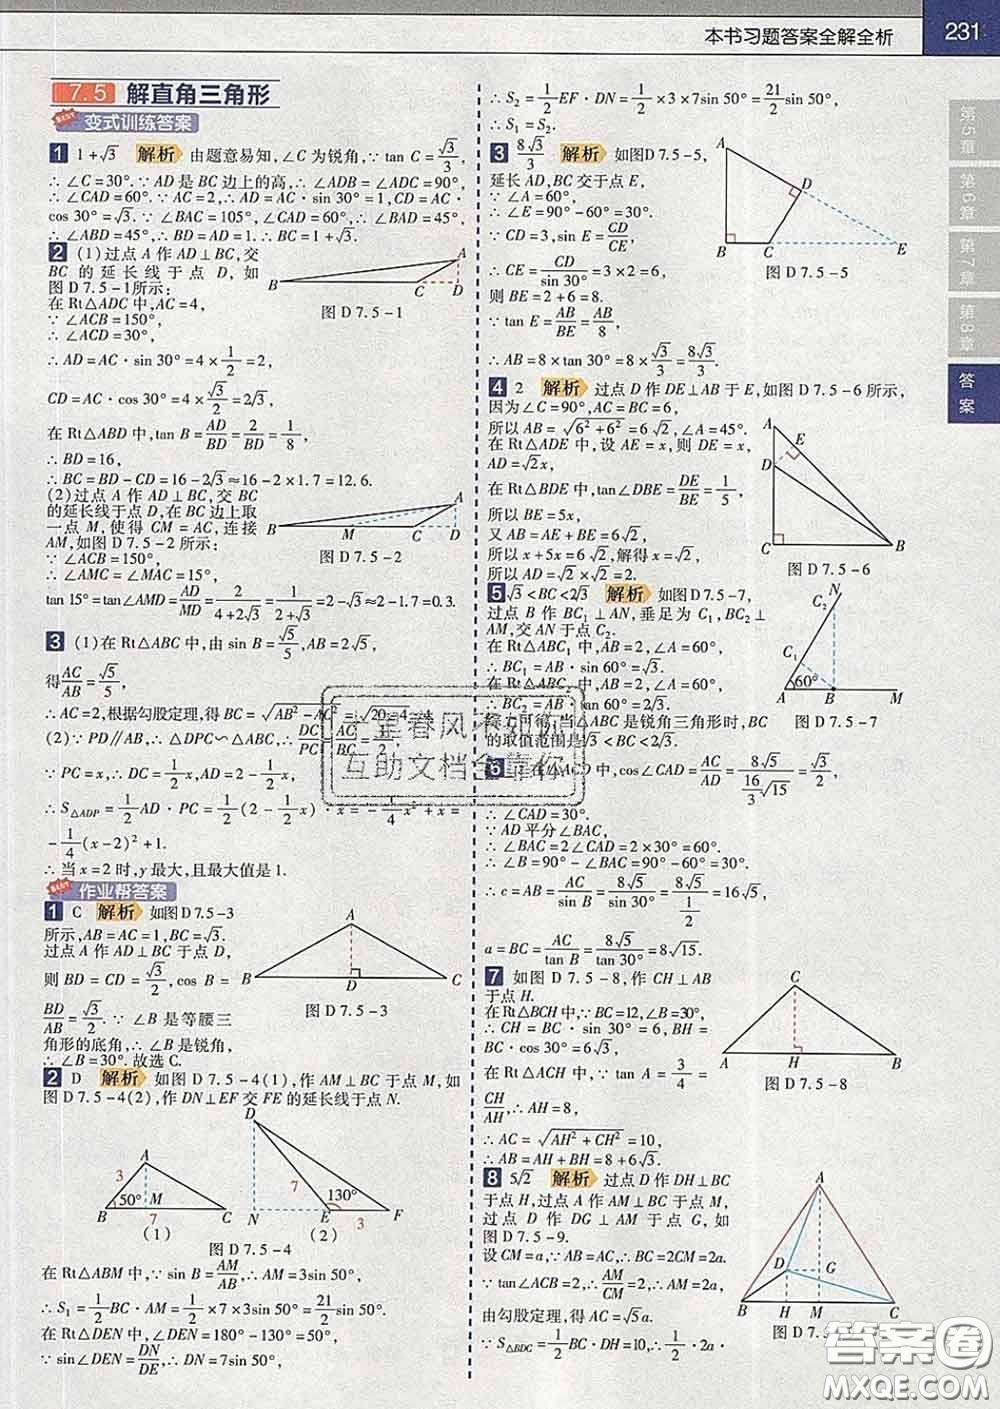 本书习题答案全解全析 231
第5章
第6章
第7章
第8章
答案
7.5 解直角三角形
变式训练答案
1 1+√3 解析 由题意易知,∠C为锐角,∵tan C=√3/3,
∴∠C=30°.∵AD是BC边上的高,∴∠ADB=∠ADC=90°,
∴∠CAD=60°.∵AC=2,∴AD=AC·sin 30°=1,CD=AC·
cos 30°=√3.∵∠BAC=105°,∠CAD=60°,∴∠BAD=45°,
∴∠ABD=45°,∴BD=AD=1.∴BC=1+√3.
2 (1)过点A作AD⊥BC,交
BC的延长线于点D,如
图D7.5-1所示:
在Rt△ADC中,AC=4,
∵∠ACB=150°,
∴∠ACD=30°,
B C D A
图D7.5-1
∴AD=AC·sin 30°=4×1/2=2,
CD=AC·cos 30°=4×√3/2=2√3,
在Rt△ABD中,tan B=AD/BD=2/BD=1/8,
∴BD=16,
∴BC=BD-CD=16-2√3≈16-2×1.7=12.6.
(2)过点A作AD⊥BC,交BC
的延长线于点D,在BC上取
一点M,使得CM=AC,连接
AM,如图D7.5-2所示:
∵∠ACB=150°,
∴∠AMC=∠MAC=15°,
B M C D A
图D7.5-2
tan 15°=tan∠AMD=AD/MD=2/(4+2√3)=1/(2+√3)=2-√3≈2-1.7=0.3.
3 (1)在Rt△ABC中,由sin B=√5/5,AB=2√5,
得AC/AB=√5/5,
∴AC=2,根据勾股定理,得BC=√(AB²-AC²)=√(20-4)
(2)∵PD∥AB,∴△DPC∽△ABC,∴DC/PC=AC/BC=2
∵PC=x,∴DC=1/2x,AD=2-1/2x,
∴S△ADP=1/2AD·PC=1/2(2-1/2x)·x=-1/4x²+x=
-1/4(x-2)²+1.
∴当x=2时,y最大,且最大值是1.
作业帮答案
1 C 解析 如图D7.5-3
所示,AB=AC=1,BC=√3.
过点A作AD⊥BC于点D,
则BD=CD=√3/2,cos B=
BD/AB=√3/2.∵∠B是等腰三
角形的底角,∴∠B是锐角,
∴∠B=30°.故选C.
A B D C
图D7.5-3
2 D 解析 如图D7.5-4(1),作AM⊥BC于点M,如
图D7.5-4(2),作DN⊥EF交FE的延长线于点N.
A 3 50° M B 7 C
(1)
D 7 130° N E 3 F
(2)
图D7.5-4
在Rt△ABM中,∵sin B=AM/AB,∴AM=3sin 50°,
∴S₁=1/2BC·AM=1/2×7×3sin 50°=21/2sin 50°.
在Rt△DEN中,∠DEN=180°-130°=50°,
∵sin∠DEN=DN/DE,∴DN=7sin 50°,
∴S₂=1/2EF·DN=1/2×3×7sin 50°=21/2sin 50°,
∴S₁=S₂.
3 8√3/3 解析 如图D7.5-5,
延长AD,BC交于点E,
∵∠A=60°,
∴∠E=90°-60°=30°.
∵CD=3,sin E=CD/CE,
∴CE=CD/sin 30°=3×2=6,
则BE=2+6=8.
∵tan E=AB/BE=AB/8,
A D B C E
图D7.5-5
∴AB=8×tan 30°=8×√3/3=8√3/3.
4 2 解析 过点D作DE⊥AB于E,如图D7.5-6所示,
因为∠C=90°,AC=BC=6,
所以AB=√(6²+6²)=6√2,∠A=45°.
在Rt△ADE中,设AE=x,则DE=x,
AD=√2x,
在Rt△BDE中,tan∠DBE=DE/BE=1/5,
所以BE=5x,
又AB=AE+BE=6√2,
所以x+5x=6√2,解得x=√2,
所以AD=√2×√2=2.
A E D C B
图D7.5-6
5 √3<BC<2√3 解析 如图D7.5-7,
过点B作BC₁⊥AN,垂足为C₁,BC₂⊥
AM,交AN于点C₂.
在Rt△ABC₁中,AB=2,∠A=60°,
∴BC₁=AB·sin 60°=√3.
在Rt△ABC₂中,AB=2,∠A=60°,
∴BC₂=AB·tan 60°=2√3.
可得,当△ABC是锐角三角形时,BC
的取值范围是√3<BC<2√3.
C₂ N C₁ 60° A B M
图D7.5-7
6 在△ACD中,cos∠CAD=AC/AD=8√5/(16/3√15)=√3/2,
∴∠CAD=30°.
∵AD平分∠BAC,
∴∠BAC=2∠CAD=60°,
∴∠B=90°-∠BAC=90°-60°=30°,
∴c=AB=AC/sin B=8√5/sin 30°=8√5/(1/2)=16√5,
a=BC=AC/tan B=8√5/tan 30°=8√15.
7 如图D7.5-8,作CH⊥AB
于点H.
在Rt△BCH中,∵BC=12,∠B=30°,
∴CH=BC·sin 30°=6,BH=
BC·cos 30°=6√3,
在Rt△ACH中,∵tan A=3/4=
CH/AH,∴AH=8,
∴AC=√(AH²+CH²)=10,
∴AB=AH+BH=8+6√3.
C A H B
图D7.5-8
8 5√2 解析 过点D作DH⊥BC
于点H,过点A作AM⊥BC于点M,
过点D作DG⊥AM于点G,如
图D7.5-9.
设CM=a,∵AB=AC,∴BC=2CM=2a.
∵tan∠ACB=2,∴AM/CM=2,∴AM=2a,
由勾股定理,得AC=√5a.
∵S△BDC=1/2BC·DH=10,∴1/2·2a·
A D G B H M C
图D7.5
春风不如你
互助文档全靠你
答案圈
MXQE.COM